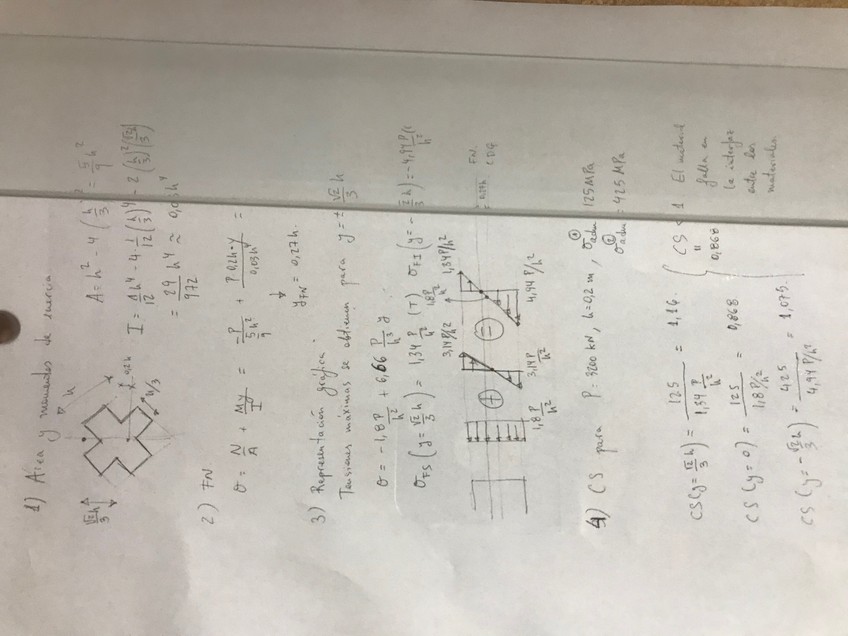 1) Área y momentos de inercia
h
A = h² - 4 (h/3)² = 5/9 h²
√2/3 h
0,2h
h/3
I = 1/12 h⁴ - 4·1/12 (h/3)⁴ - 2 (h/3)² (√2h/3)²
= 29/972 h⁴ ≈ 0,03h⁴
2) FN
σ = N/A + My/I = -P/(5/9 h²) + P·0,2h·y/0,03h⁴ =
y_FN = 0,27h.
3) Representación gráfica:
Tensiones máximas se obtienen para y = ± √2/3 h
σ = -1,8 P/h² + 6,66 P/h³ y
σ_FS (y = √2/3 h) = 1,34 P/h² (T) σ_FI (y = -√2/3 h) = -4,94 P/h²
3,14P/h² 1,34P/h²
1,8P/h² 0,27h FN.
CDG
1,8 P/h² 3,14P/h² 4,94 P/h²
4) CS para P = 3200 kN, h = 0,2 m, σadm = 125 MPa
σadm = 425 MPa
CS (y = √2/3 h) = 125/(1,34 P/h²) = 1,16.
CS (y = 0) = 125/(1,8 P/h²) = 0,868
CS (y = -√2/3 h) = 425/(4,94 P/h²) = 1,075.
CS < 1 El material
0,868 falla en
la interfaz
entre los
materiales.